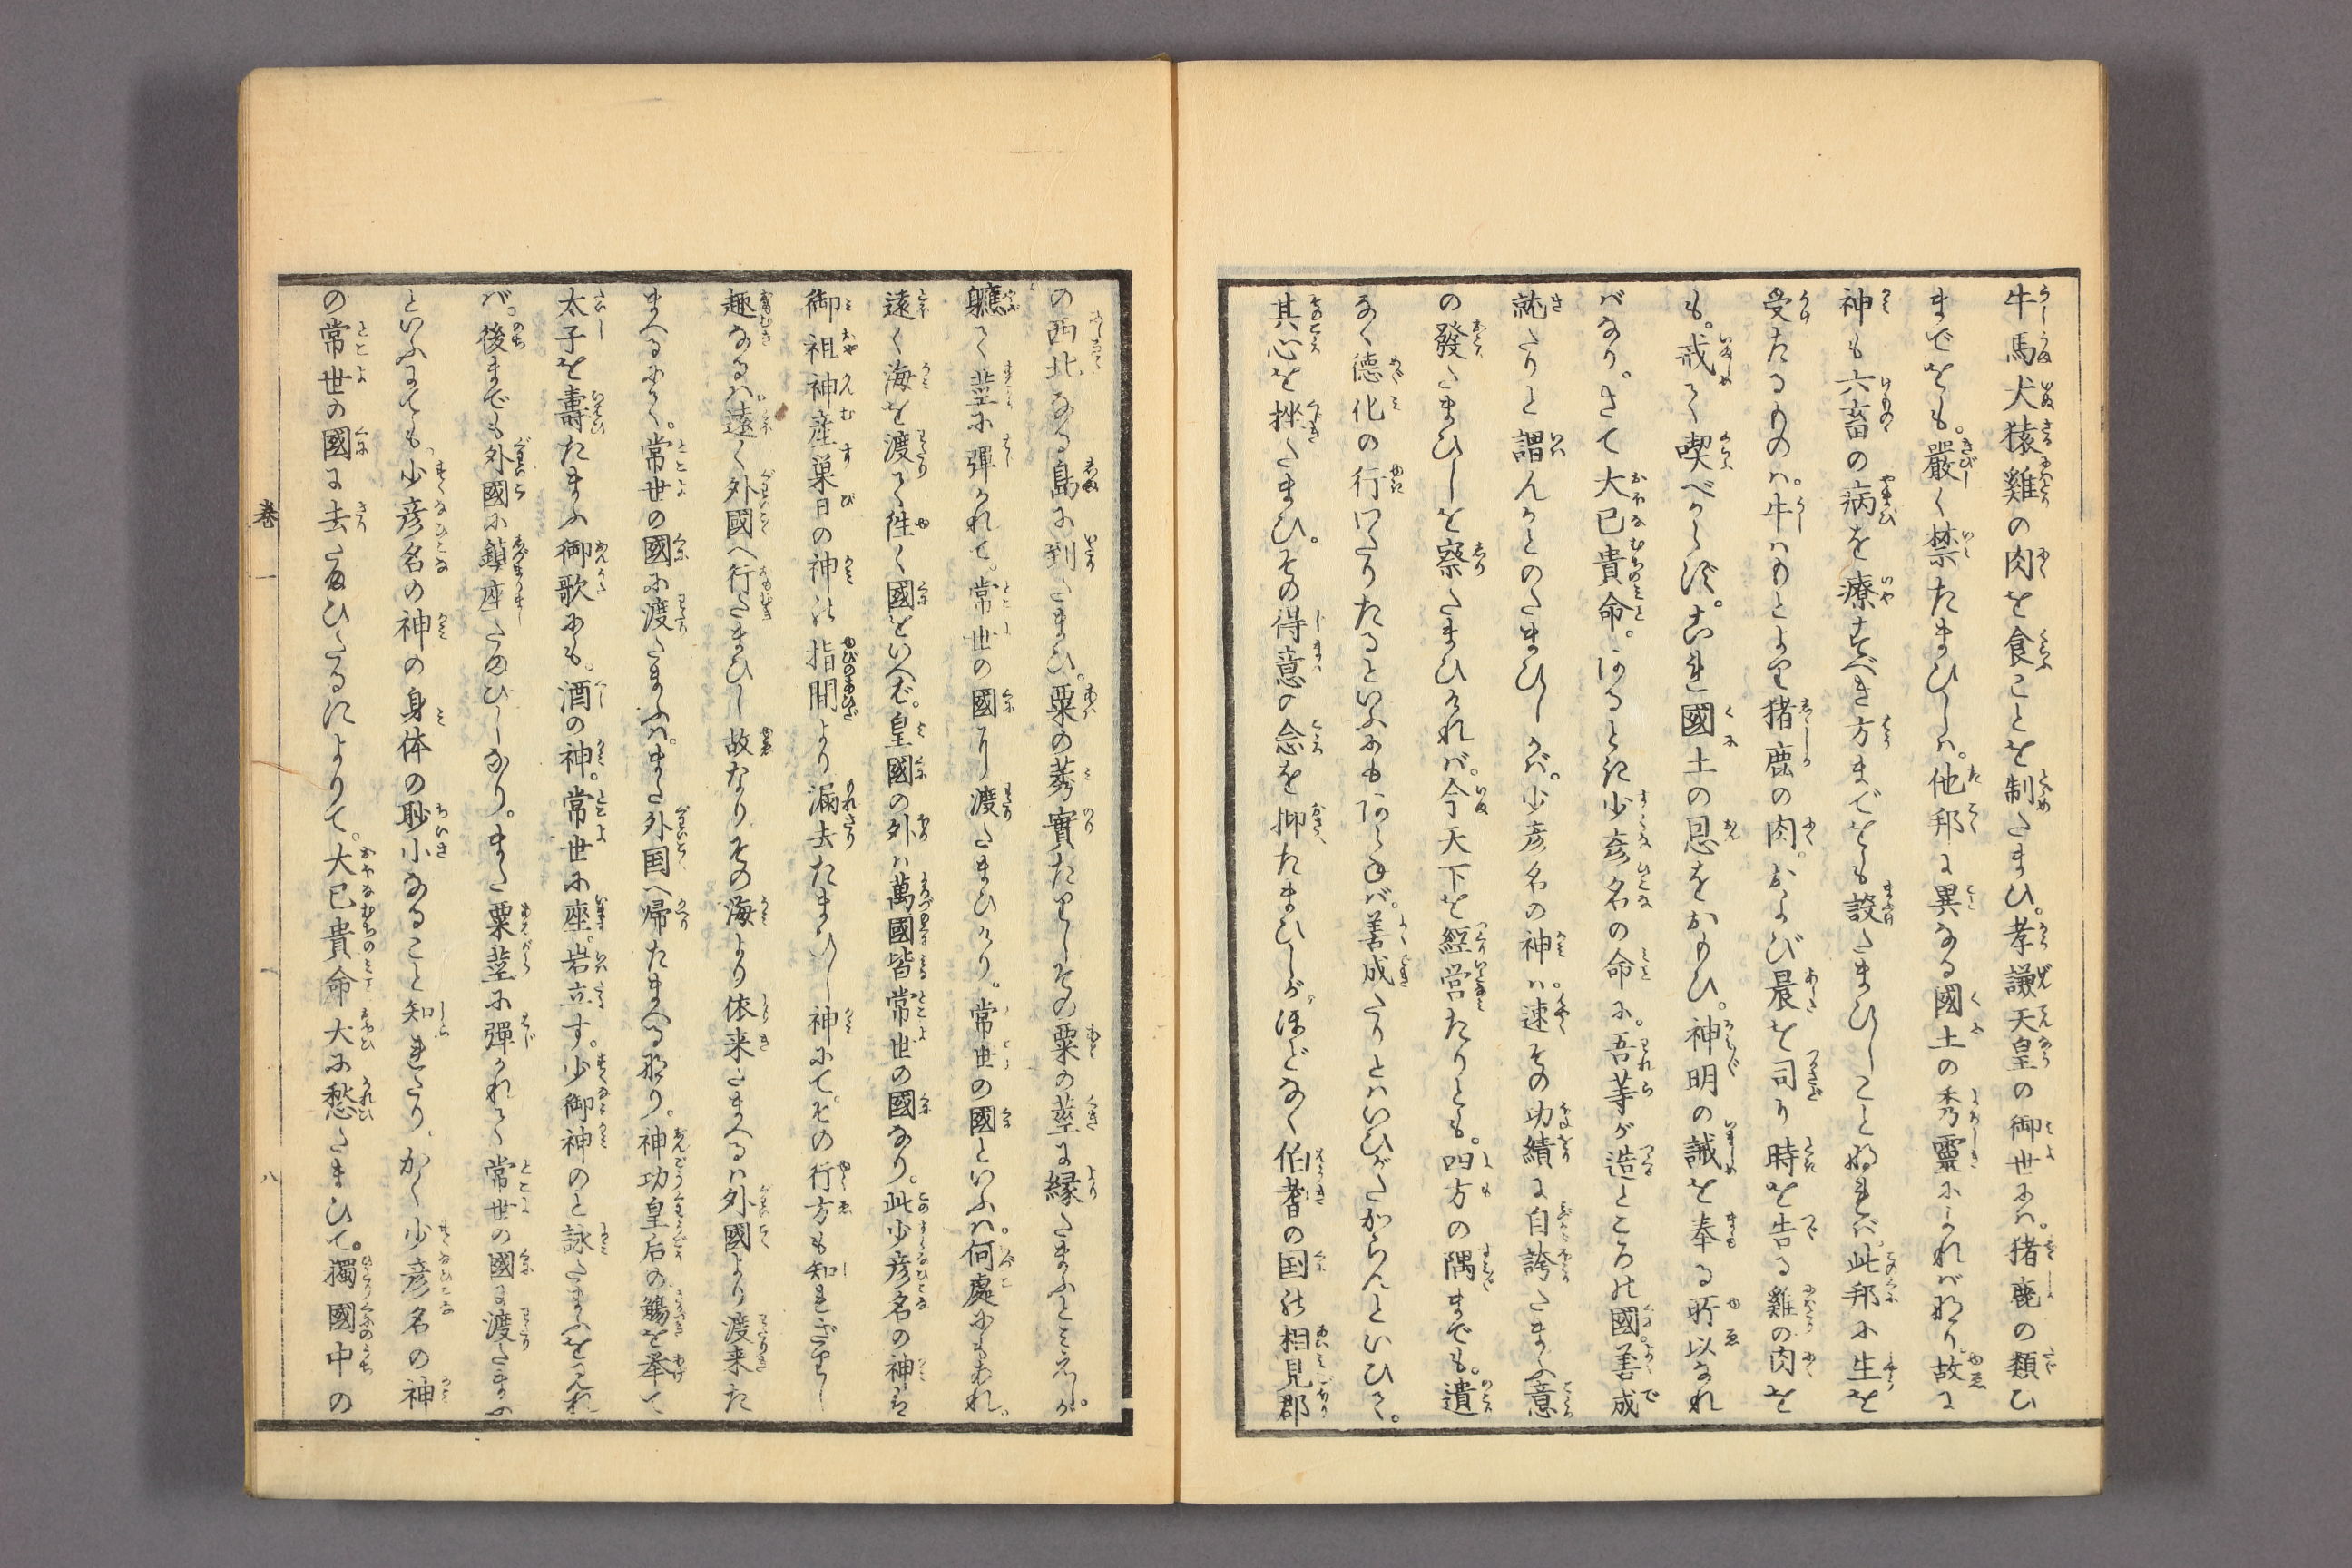 牛馬犬猿雞の肉を食ことを制たまひ。孝謙天皇の御世には。猪鹿の類ひ
までをも。嚴く禁たまひしは。他邦に異なる國土の秀靈によれば也。故に
神も六畜の病を療すべき方までをも設たまひしことぬれば。此邦に生を
受たるものは。牛はもとより猪鹿の肉。および晨を司り時を告る雞の肉を
も。戒て喫べからず。これ國土の恩をおもひ。神明の誡を奉る所以なれ
ばなり。さて大已貴命。あるとき少彦名の命に。吾等が造ところの國善成
就たりと謂んかとのたまひしかば。少彦名の神は。速その功績に自誇たまふ意
の發たまひしを察たまひければ。今天下を經営たりとも。四方の隅までも。遺
なく德化の行わたりたるといふにもあらねば。善成たりとはいひがたからんといひて。
其心を挫たまひ。その得意の念を抑たまひしが。ほどなく伯耆の国の相見郡
の西北なる島に到たまひ。粟の莠實たりしその粟の莖に縁たまふとみえしが。
軈て莖に彈かれて。常世の國に渡たまひけり。常世の國といふは。何處にもあれ。
遠く海を渡て往く國をいへば。皇國の外は萬國皆常世の國なり。此少彦名の神は
御祖神産巣日の神の指間より漏去たまひし神にて。その行方も知れざりし
趣なるは。遠く外國へ行たまひし故なりその海より依来たまへるは外國より渡来た
まへるにて。常世の國に渡たまふは。また外国へ帰たまへる也。神功皇后の觴を举て
太子を壽たまふ御歌にも。酒の神。常世に座。岩立す。少御神のと詠たまふを見れ
ば。後までも外國に鎮座たまひしなり。また粟莖に彈かれて常世の國に渡たまふ
といふにても。少彦名の神の身体の眇小なること知れたり。かく少彦名の神
の常世の國に去たまひたるによりて。大已貴命大に愁たまひて。獨國中の
巻一
八